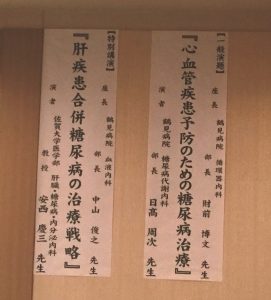 【一般演題】
座長 鶴見病院 循環器内科
部長 財前 博文 先生
『心血管疾患予防のための糖尿病治療』
演者 鶴見病院 糖尿病代謝内科
部長 日高 周次 先生
【特別講演】
座長 鶴見病院 血液内科
部長 中山 俊之 先生
『肝疾患合併糖尿病の治療戦略』
演者 佐賀大学医学部 肝臓・糖尿病・内分泌内科
教授 安西 慶三 先生